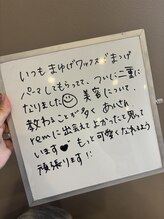 いつもまゆげワックスとまつげ
パーマしてもらってて、ついに二重に
なりました 美容について、
教わることが多く あいさん、
remに出会えて良かったと思って
います♥ もっと可愛くなれるよう
頑張ります!!